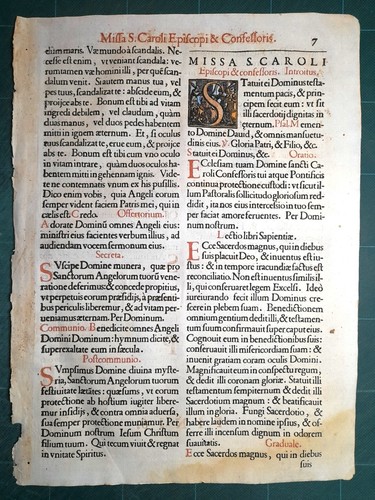 Missa S. Caroli Episcopi & Confessoris. 7
dium maris. Væ mundo à scandalis. Ne-
cesse est enim, vt veniant scandala: ve-
rumtamen væ homini illi, per quē scan-
dalum venit. Si autem manus tua, vel
pes tuus, scandalizat te: abscide eum, &
proijce abs te. Bonum est tibi ad vitam
ingredi debilem, vel claudum, quàm
duas manus, vel duo pedes habentem
mitti in ignem æternum. Et, si oculus
tuus scandalizat te, erue eum, & proijce
abs te. Bonum est tibi cum vno oculo
in vitam intrare, quàm duos oculos ha-
bentem mitti in gehennam ignis. Vide-
te ne contemnatis vnum ex his pusillis.
Dico enim vobis, quia Angeli eorum
semper vident faciem Patris mei, qui in
cælis est. Credo. Offertorium.
Adorate Dominū omnes Angeli eius:
ministri eius facientes verbum illius, ad
audiendam vocem sermonum eius.
Secreta.
SVscipe Domine munera, quæ pro
Sanctorum Angelorum tuorū vene-
ratione deferimus: & concede propitius,
vt perpetuis eorum præsidijs, à præsenti-
bus periculis liberemur, & ad vitam per-
ueniamus æternam. Per Dominum.
Communio. Benedicite omnes Angeli
Domini Dominum: hymnum dicite, &
superexaltate eum in sæcula.
Postcommunio.
SVmpsimus Domine diuina myste-
ria, Sanctorum Angelorum tuorum
festiuitate lætātes: quæsumus, vt eorum
protectione ab hostium iugiter libere-
mur insidijs, & contra omnia aduersa,
sua semper protectione muniamur. Per
Dominum nostrum Iesum Christum
filium tuum. Qui tecum viuit & regnat
in vnitate Spiritus.
MISSA S. CAROLI
Episcopi & confessoris. Introitus.
STatuit ei Dominus testa-
mentum pacis, & prin-
cipem fecit eum: vt sit
illi sacerdotij dignitas in
æternum. Psal. Memen-
to Domine Dauid, & omnis mansuetu-
dinis eius. ℣. Gloria Patri, & Filio, &c.
Statuit ei Dominus, &c. Oratio.
ECclesiam tuam Domine sancti Ca-
roli Confessoris tui atque Pontificis
continua protectione custodi: vt sicut il-
lum Pastoralis sollicitudo gloriosum red-
didit, ita nos eius intercessio in tuo sem-
per faciat amore feruentes. Per Domi-
num nostrum.
Lectio libri Sapientiæ.
ECce Sacerdos magnus, qui in diebus
suis placuit Deo, & inuentus est ius-
tus: & in tempore iracundiæ factus est
reconciliatio. Non est inuentus similis il-
li, qui conseruaret legem Excelsi. Ideo
iureiurando fecit illum Dominus cres-
cere in plebem suam. Benedictionem
omnium gentium dedit illi, & testamen-
tum suum confirmauit super caput eius.
Cognouit eum in benedictionibus suis:
conseruauit illi misericordiam suam: &
inuenit gratiam coram oculis Domini.
Magnificauit eum in conspectu regum,
& dedit illi coronam gloriæ. Statuit illi
testamentum sempiternum & dedit illi
sacerdotium magnum: & beatificauit
illum in gloria. Fungi Sacerdotio, &
habere laudem in nomine ipsius, & of-
ferre illi incensum dignum in odorem
suauitatis. Graduale.
Ecce Sacerdos magnus, qui in diebus
suis